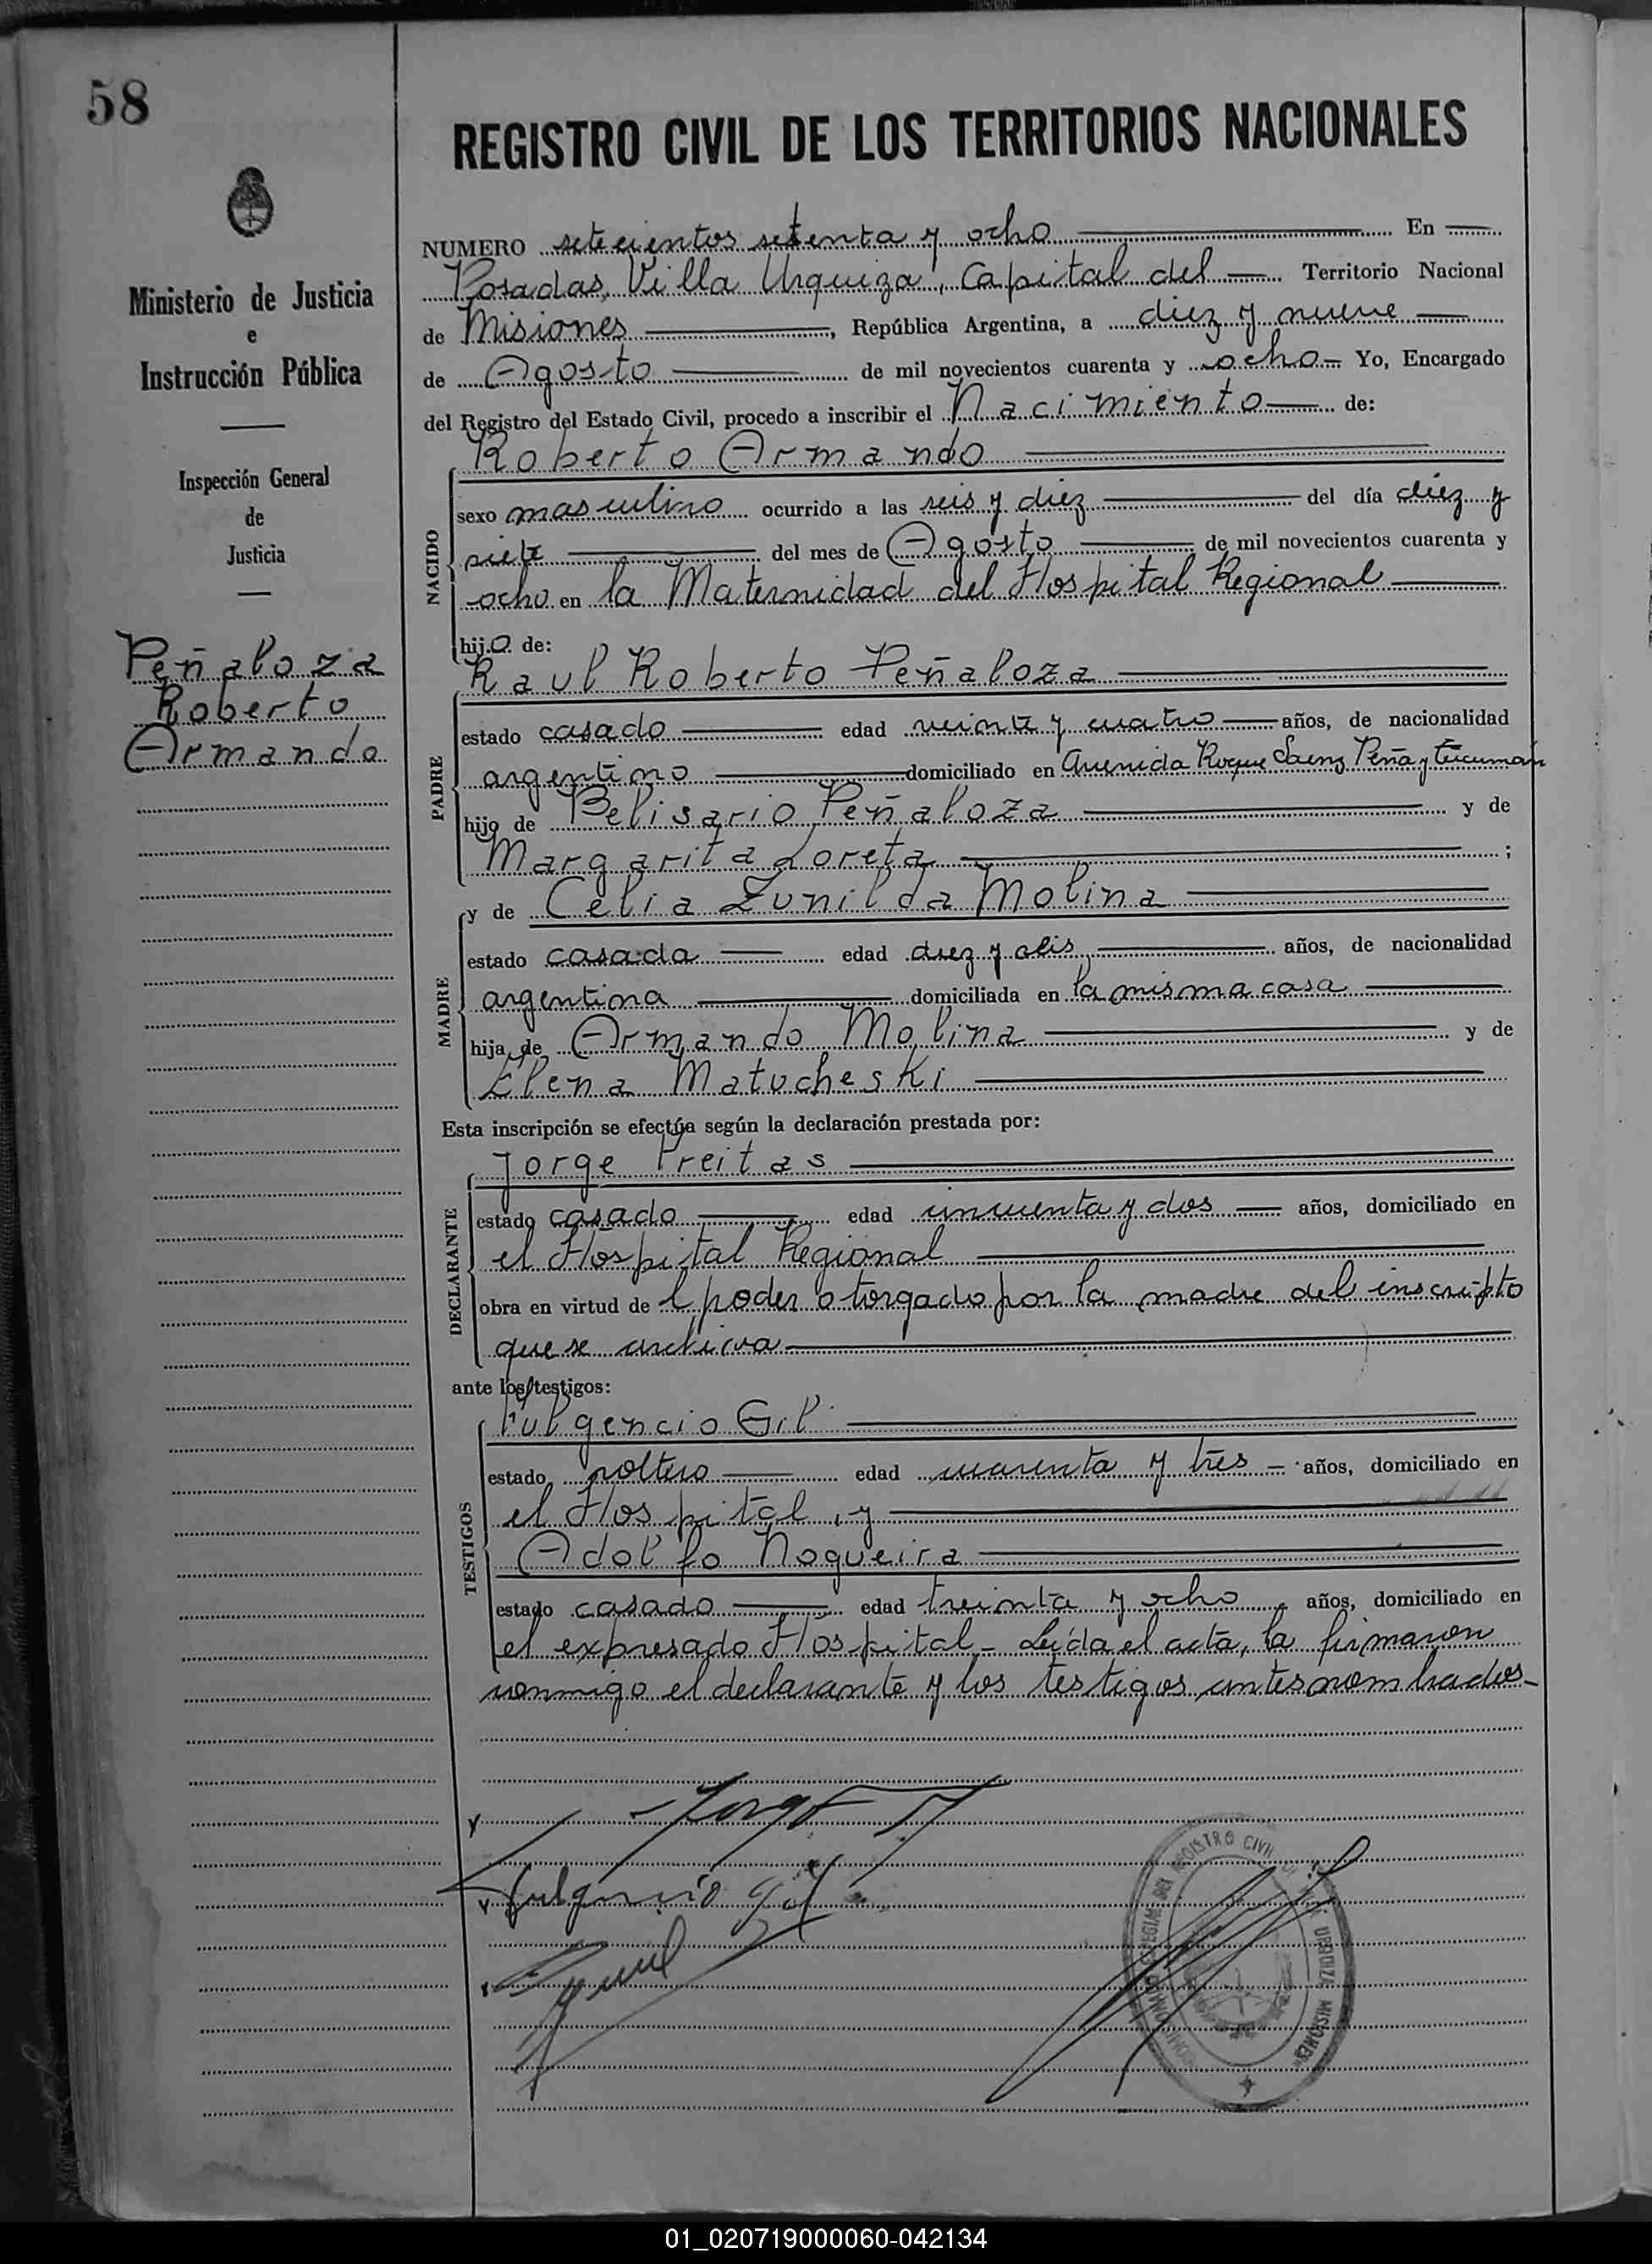 58
REGISTRO CIVIL DE LOS TERRITORIOS NACIONALES
Ministerio de Justicia
e
Instrucción Pública
Inspección General
de
Justicia
Peñaloza
Roberto
Armando
NUMERO setecientos setenta y ocho En
Posadas, Villa Urquiza, Capital del Territorio Nacional
de Misiones, República Argentina, a diez y nueve
de Agosto de mil novecientos cuarenta y ocho Yo, Encargado
del Registro del Estado Civil, procedo a inscribir el Nacimiento de:
NACIDO
Roberto Armando
sexo masculino ocurrido a las seis y diez del día diez y
siete del mes de Agosto de mil novecientos cuarenta y
ocho en la Maternidad del Hospital Regional
hijo de:
PADRE
Raul Roberto Peñaloza
estado casado edad veinte y cuatro años, de nacionalidad
argentino domiciliado en Avenida Roque Saenz Peña y Tucumán
hijo de Belisario Peñaloza y de
Margarita Loreta;
MADRE
y de Celia Zunilda Molina
estado casada edad diez y seis años, de nacionalidad
argentina domiciliada en la misma casa
hija de Armando Molina y de
Elena Matucheski
Esta inscripción se efectúa según la declaración prestada por:
DECLARANTE
Jorge Freitas
estado casado edad cincuenta y dos años, domiciliado en
el Hospital Regional
obra en virtud de l poder otorgado por la madre del inscripto
que se archiva
ante los testigos:
TESTIGOS
Fulgencio Gil
estado soltero edad cuarenta y tres años, domiciliado en
el Hospital, y
Adolfo Nogueira
estado casado edad treinta y ocho años, domiciliado en
el expresado Hospital - Leída el acta, la firmaron
conmigo el declarante y los testigos antes nombrados-
Jorge
Fulgencio Gil
REGISTRO CIVIL
URQUIZA MISIONES
01_020719000060-042134